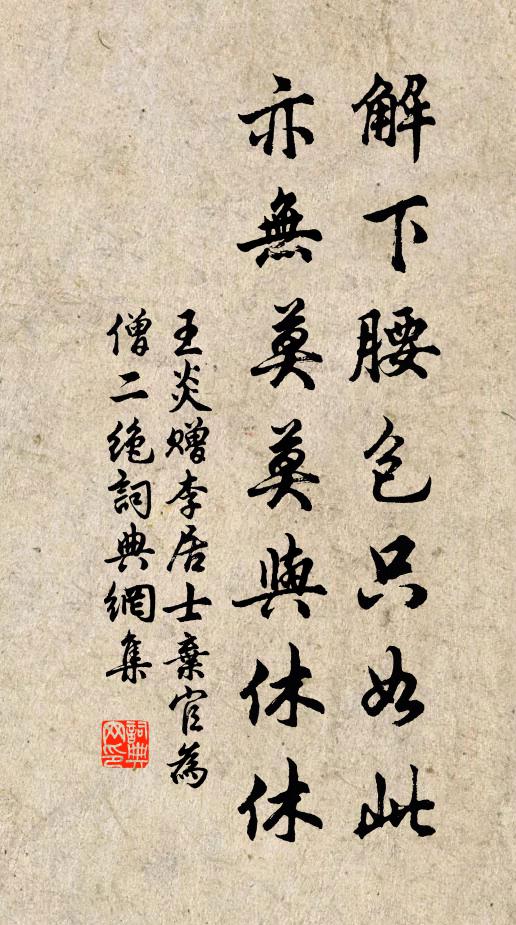 解下腰包只如此
亦無莫莫與休休
王炎贈李居士棄官為
僧二絶詞典網集
詞典